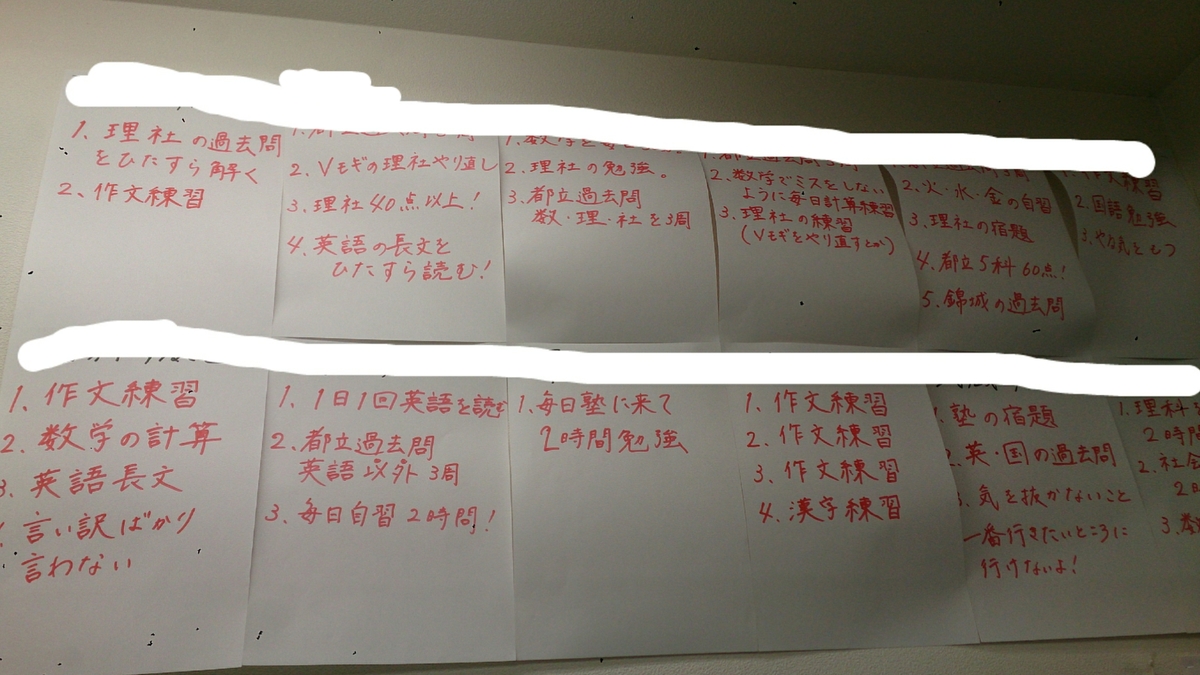 1. 理社の過去問
をひたすら解く
2. 作文練習
2. Vモギの理社やり直し
3. 理社40点以上!
4. 英語の長文を
ひたすら読む!
2. 理社の勉強。
3. 都立過去問
数・理・社を3周
2. 数学でミスをしない
ように毎日計算練習
3. 理社の練習
(Vモギをやり直すとか)
2. 火・水・金の自習
3. 理社の宿題
4. 都立5科60点!
5. 錦城の過去問
作文練習
2. 国語勉強
3. やる気をもつ
1. 作文練習
2. 数学の計算
3. 英語長文
4. 言い訳ばかり
言わない
1. 1日1回英語を読む
2. 都立過去問
英語以外3周
3. 毎日自習2時間!
1. 毎日塾に来て
2時間勉強
1. 作文練習
2. 作文練習
3. 作文練習
4. 漢字練習
1. 塾の宿題
2. 英・国の過去問
3. 気を抜かないこと
一番行きたいところに
行けないよ!
1. 理科
2時間
2. 社会
3.